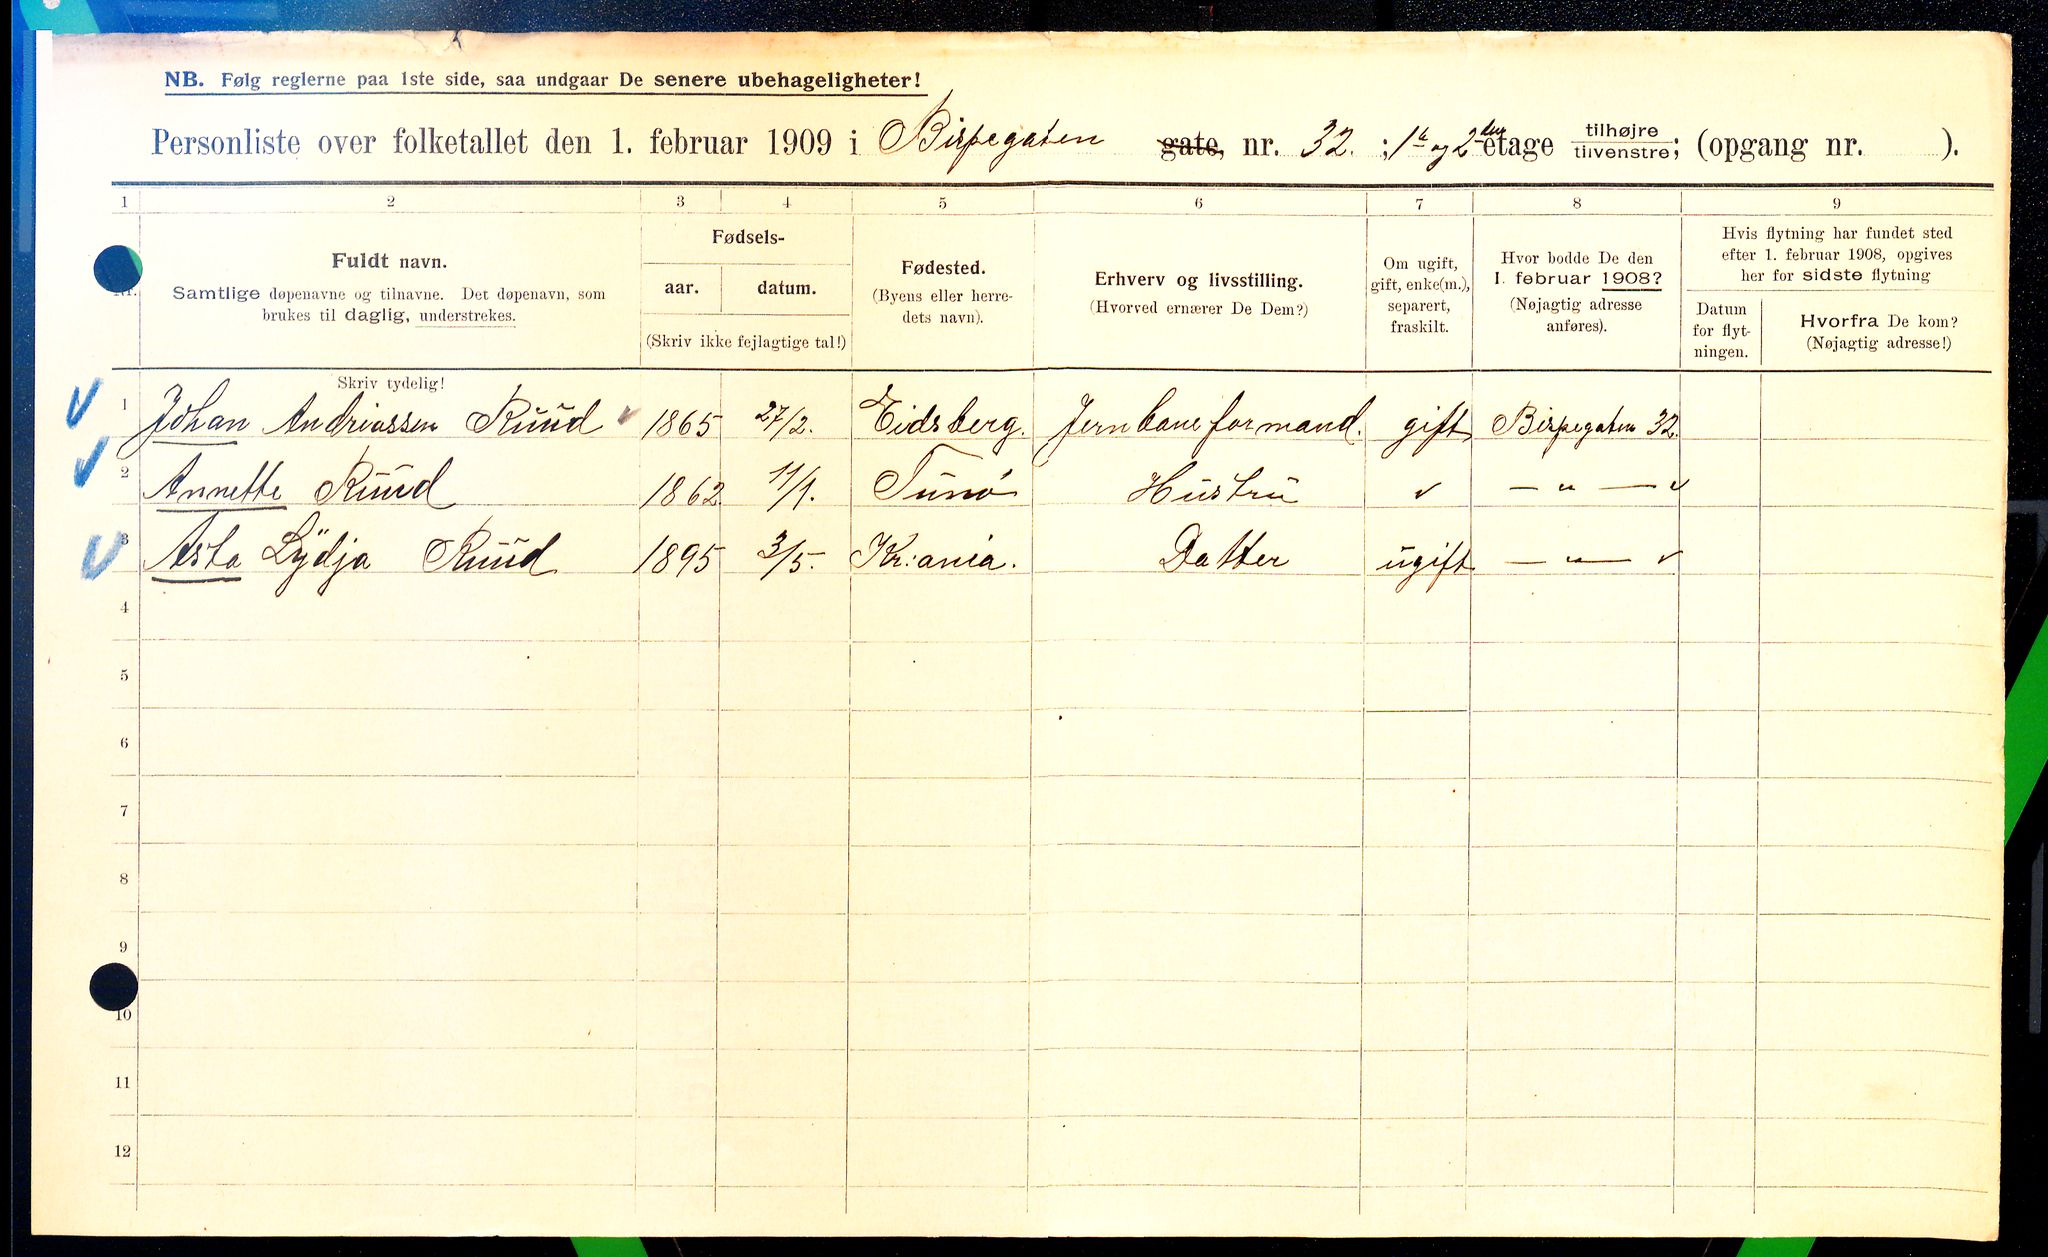 NB. Følg reglerne paa 1ste side, saa undgaar De senere ubehageligheter!
Personliste over folketallet den 1. februar 1909 i Bispegaten gate, nr. 32. ; 1ste og 2den etage tilhøjre tilvenstre; (opgang nr. ).
1 2 3 4 5 6 7 8 9
Nr.
Fuldt navn.
Samtlige døpenavne og tilnavne. Det døpenavn, som
brukes til daglig, understrekes.
Skriv tydelig!
Fødsels-
aar. datum.
(Skriv ikke fejlagtige tal!)
Fødested.
(Byens eller herre-
dets navn).
Erhverv og livsstilling.
(Hvorved ernærer De Dem?)
Om ugift,
gift, enke(m.),
separert,
fraskilt.
Hvor bodde De den
1. februar 1908?
(Nøjagtig adresse
anføres).
Hvis flytning har fundet sted
efter 1. februar 1908, opgives
her for sidste flytning
Datum
for flyt-
ningen.
Hvorfra De kom?
(Nøjagtig adresse!)
1 Johan Andriassen Ruud 1865 27/2. Eidsberg. Jernbaneformand. gift Bispegaten 32.
2 Annette Ruud 1862 11/1. Tunø Hustru — " —
3 Asta Lydja Ruud 1895 3/5. Kr:ania. Datter ugift — " —
4
5
6
7
8
9
10
11
12